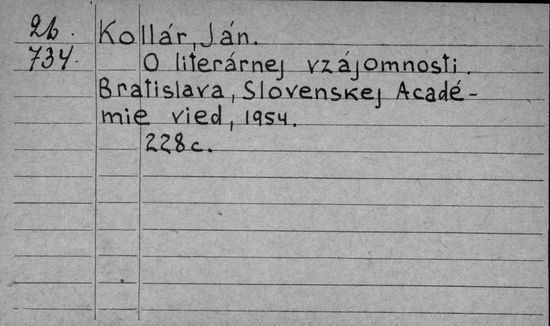 2b. Kollár, Ján.
734. O literárnej vzájomnosti.
Bratislava, Slovenskej Acadé-
mie vied, 1954.
228c.